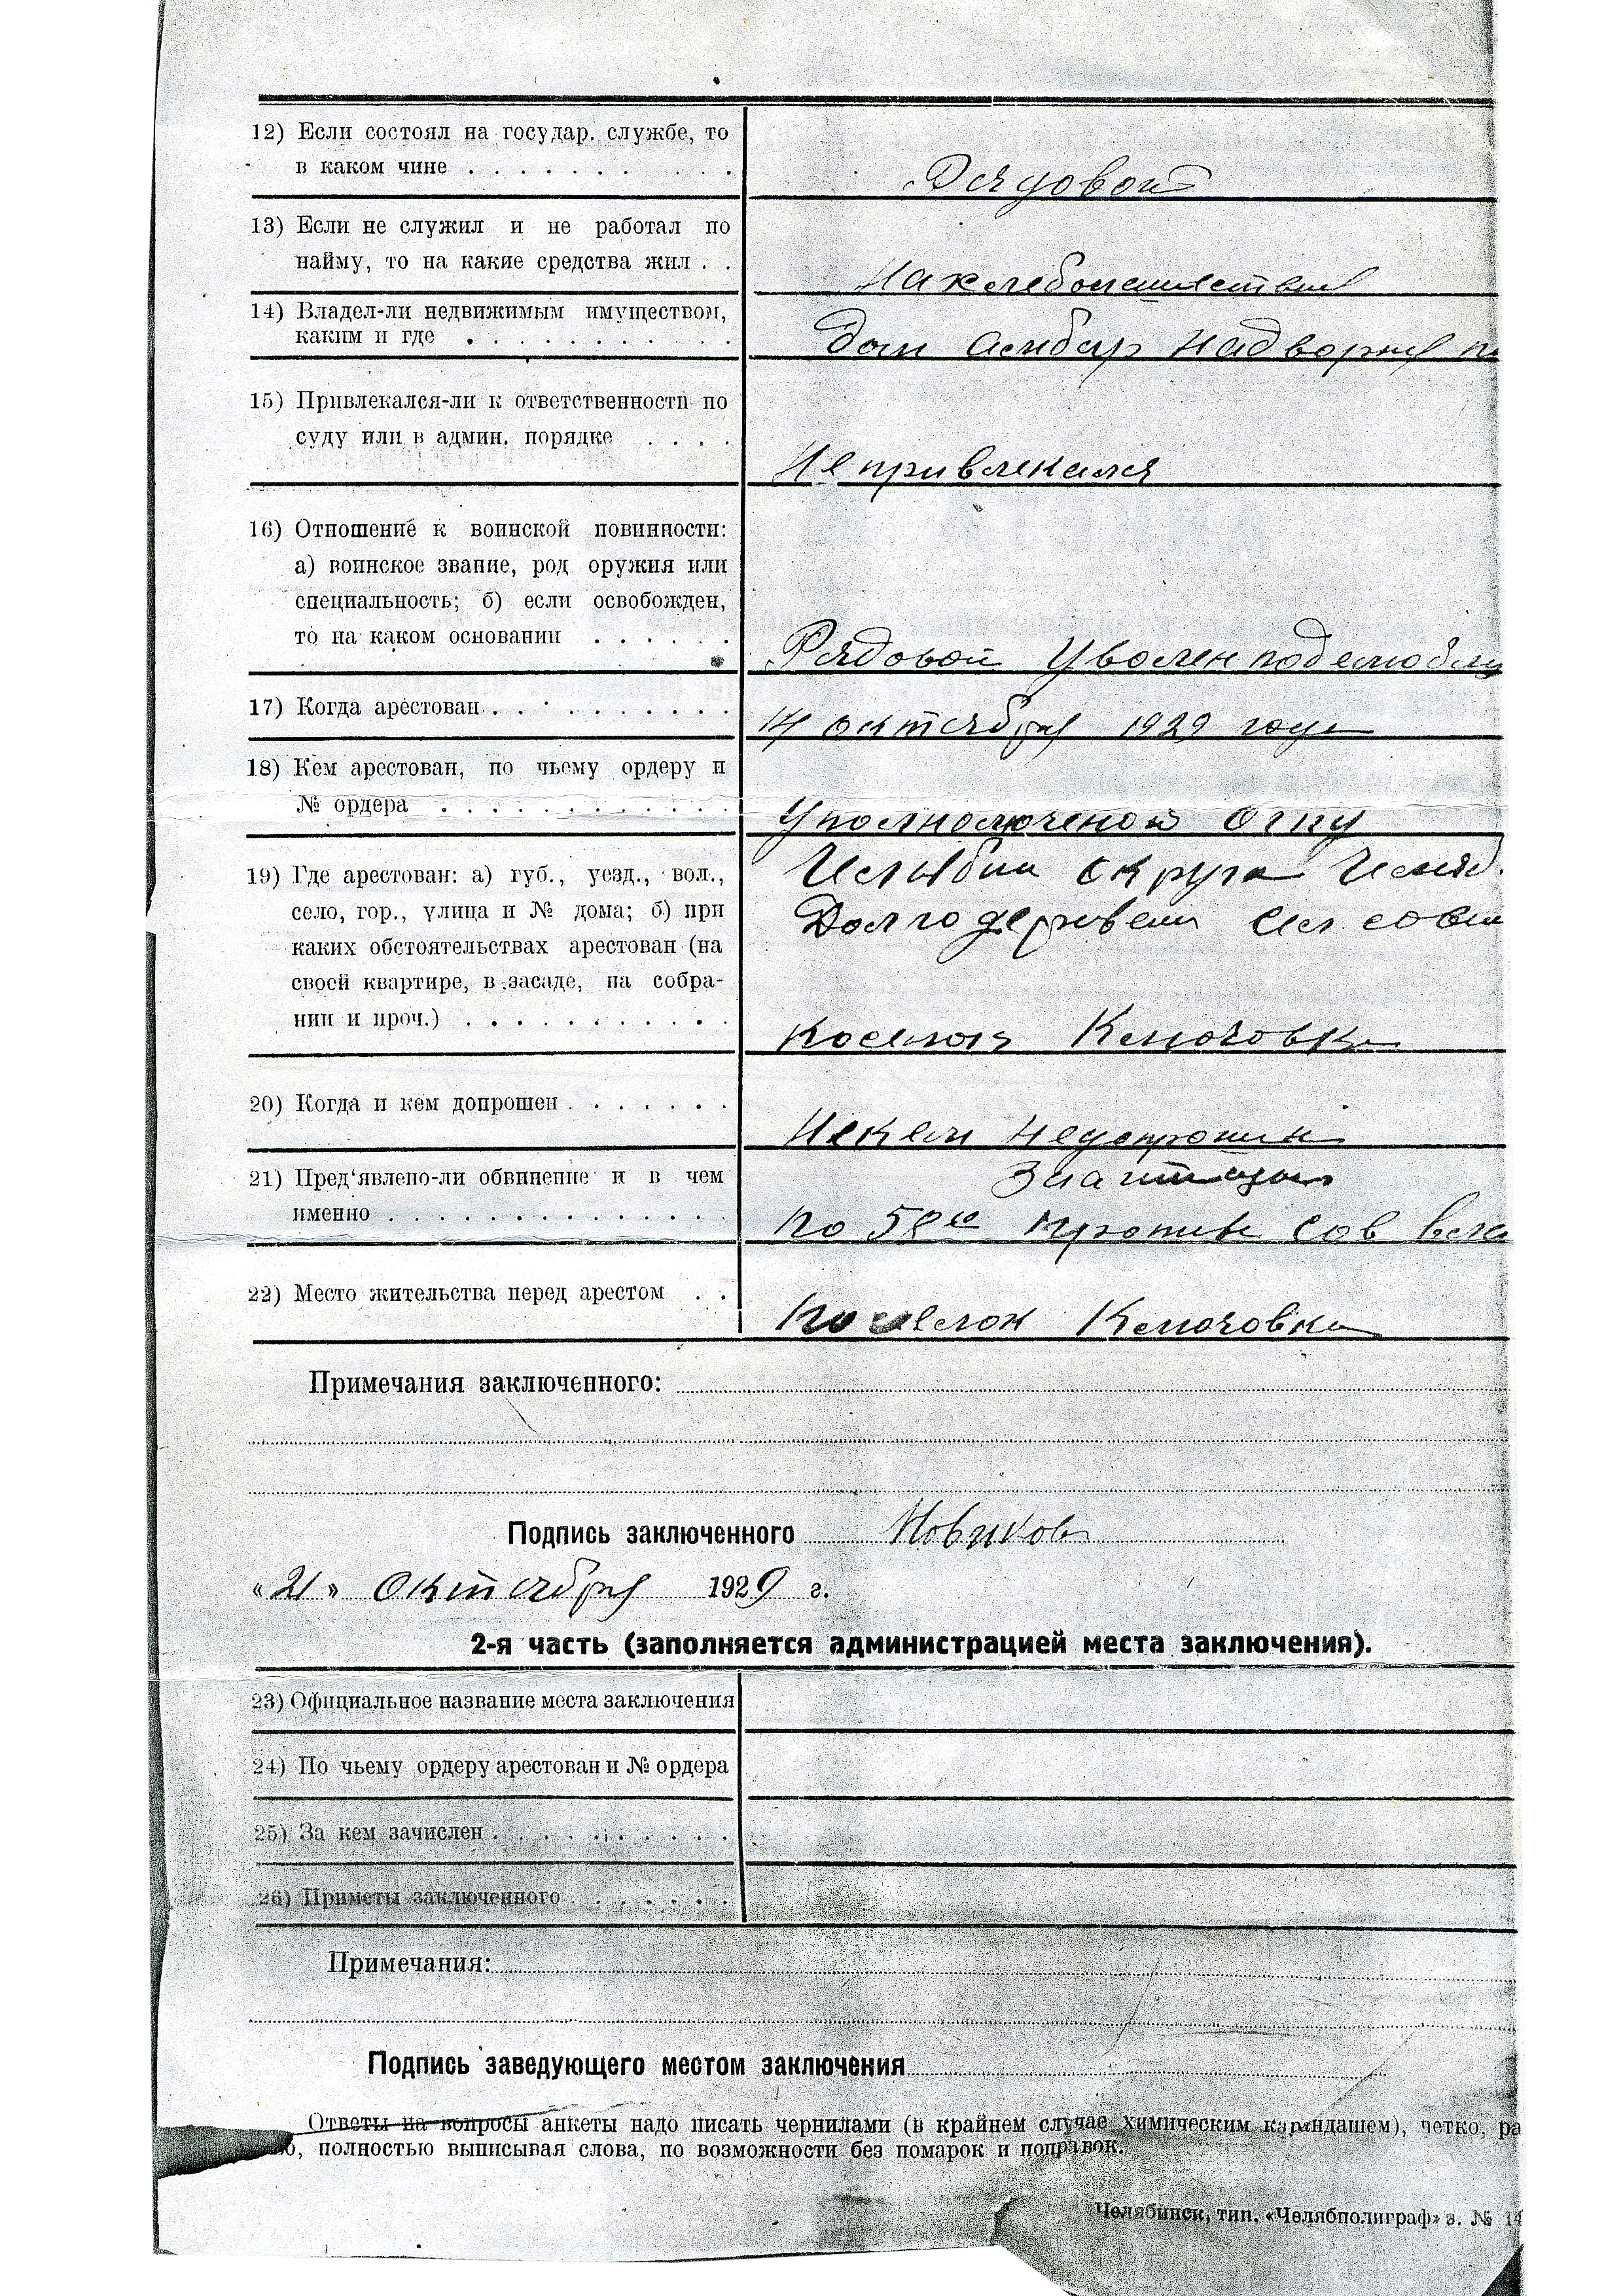 12) Если состоял на государ. службе, то
в каком чине . . . . . . . . . .
Рядовой
13) Если не служил и не работал по
найму, то на какие средства жил . .
На хлебопашестви
14) Владел-ли недвижимым имуществом,
каким и где . . . . . . . . . .
Дом Амбар Надворня
15) Привлекался-ли к ответственности по
суду или в админ. порядке . . . .
Не привлекался
16) Отношение к воинской повинности:
а) воинское звание, род оружия или
специальность; б) если освобожден,
то на каком основании . . . . . .
Рядовой Уволен
17) Когда арестован . . . . . . . . . .
14 октября 1929 года
18) Кем арестован, по чьему ордеру и
№ ордера . . . . . . . . . . .
Уполномоченой Огпу
19) Где арестован: а) губ., уезд., вол.,
село, гор., улица и № дома; б) при
каких обстоятельствах арестован (на
своей квартире, в засаде, на собра-
нии и проч.) . . . . . . . . . .
Челябин округа Челяб.
Долгодеревен Сел сове
поселок Ключовка
20) Когда и кем допрошен . . . . . .
Некем Недопрошин
21) Пред'явлено-ли обвинение и в чем
именно . . . . . . . . . . . . .
За агитацию
по 58 10 против Сов вла
22) Место жительства перед арестом . .
Поселок Ключовка
Примечания заключенного:
Подпись заключенного Новиков
«21» Октября 1929 г.
2-я часть (заполняется администрацией места заключения).
23) Официальное название места заключения
24) По чьему ордеру арестован и № ордера
25) За кем зачислен . . . . . . . . . .
26) Приметы заключенного . . . . . .
Примечания:
Подпись заведующего местом заключения
Ответы на вопросы анкеты надо писать чернилами (в крайнем случае химическим карандашем), четко, ра
о, полностью выписывая слова, по возможности без помарок и поправок.
Челябинск, тип. «Челябполиграф» з. № 14